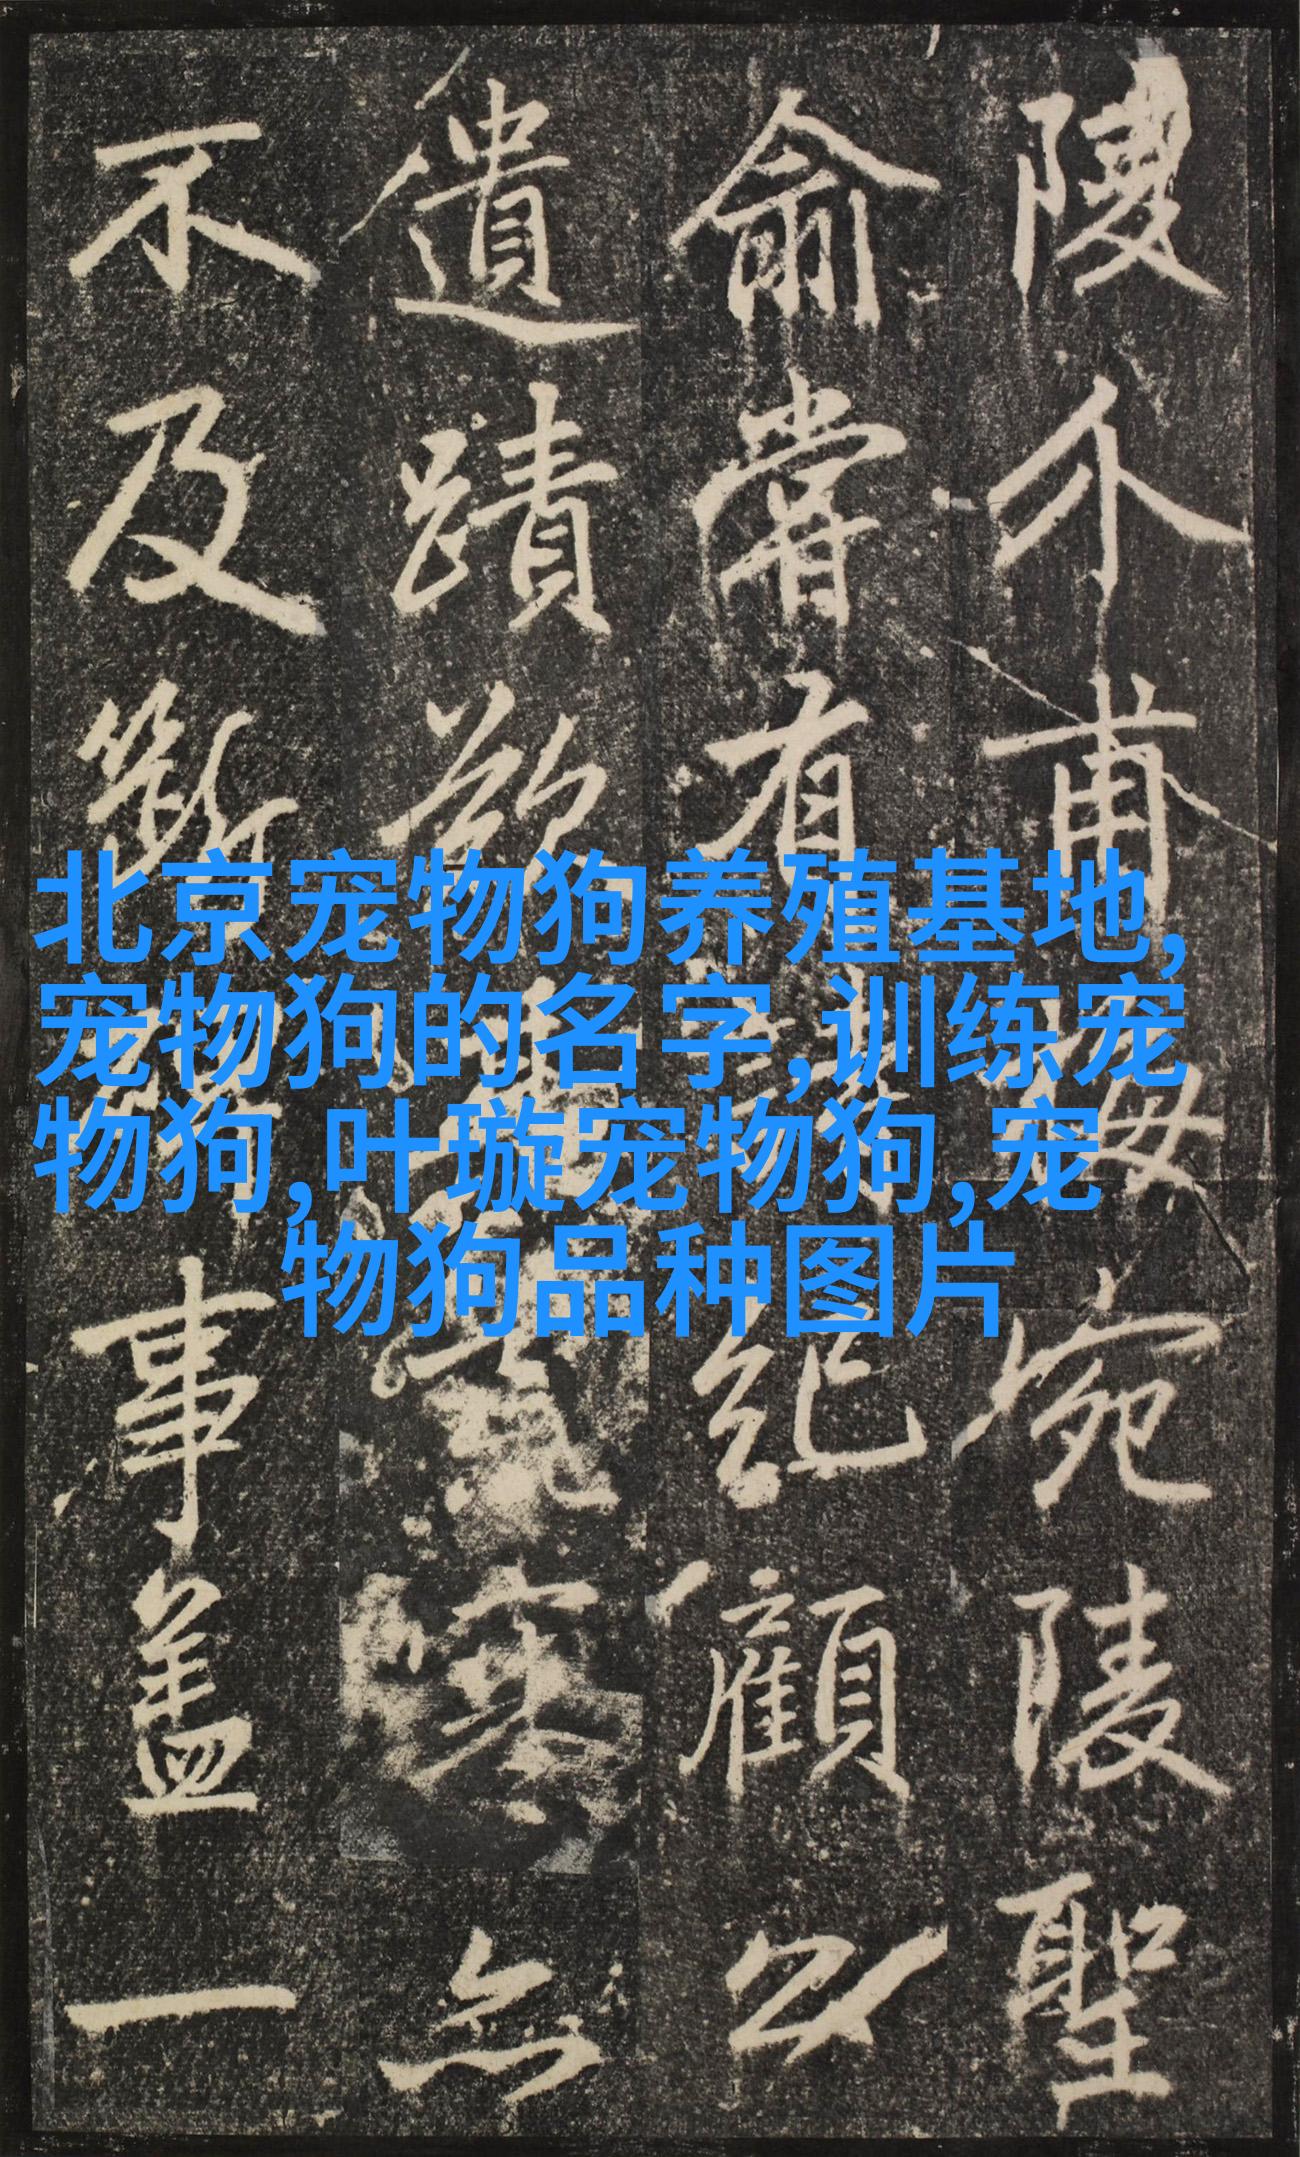 陵介甫梅宛陵聖
俞嘗有紀顧公
遺蹟
不及斷事蓋一
北京宠物狗养殖基地,
宠物狗的名字,训练宠
物狗,叶璇宠物狗,宠
物狗品种图片